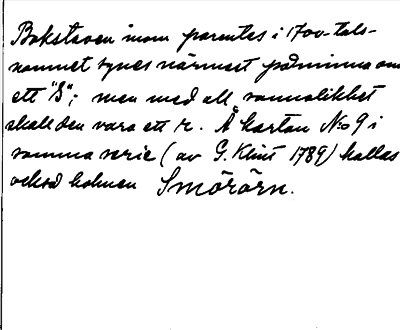 Bokstaven inom parentes i 1700-tals-
namnet synes närmast påminna om
ett "B"; men med all sannolikhet
skall den vara ett r. Å kartan No 9 i
samma serie (av G. Klint 1789) kallas
också holmen Smörörn.